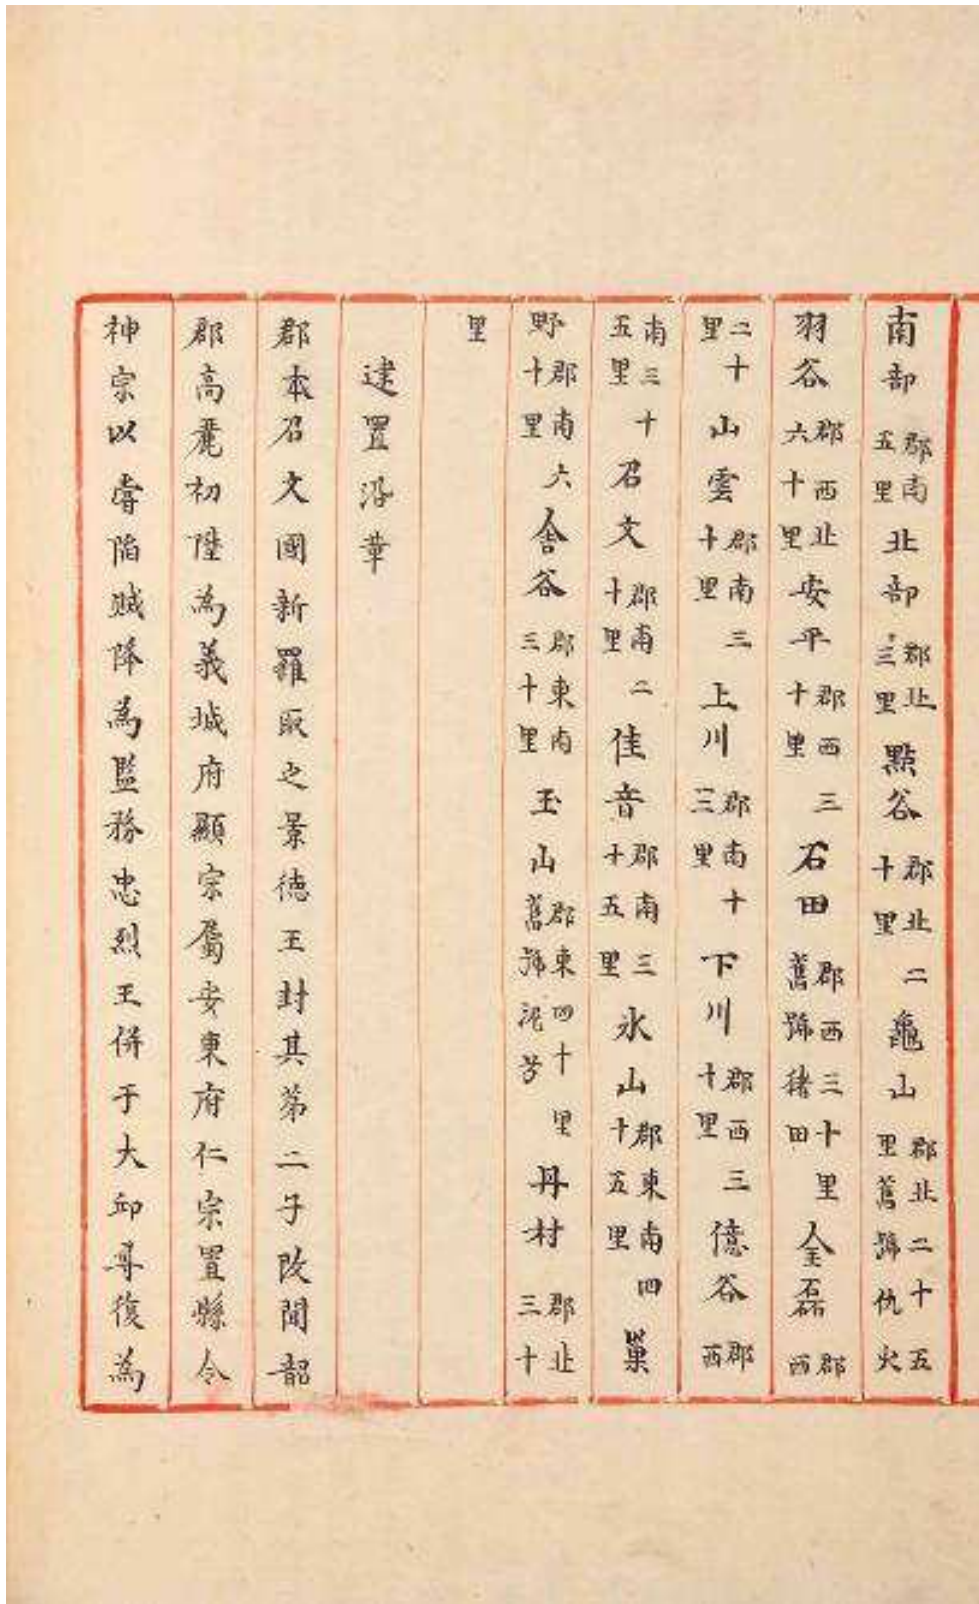 南部郡南五里北部郡北三里點谷郡北二十里龜山郡北二十五里舊號仇火
羽谷郡西北六十里安平郡西三十里石田郡西三十里舊號猪田金磊郡西
二十里山雲郡南三十里上川郡南十三里下川郡西三十里億谷郡西
南三十五里召文郡南二十里佳音郡南三十五里氷山郡東南四十五里巢
野郡南六十里舍谷郡東南三十里玉山郡東四十里舊號泥芳丹村郡北三十
里
建置沿革
郡本召文國新羅取之景德王封其第二子改聞韶
郡高麗初陞為義城府顯宗屬安東府仁宗置縣令
神宗以嘗陷賊降為監務忠烈王併于大邱尋復為